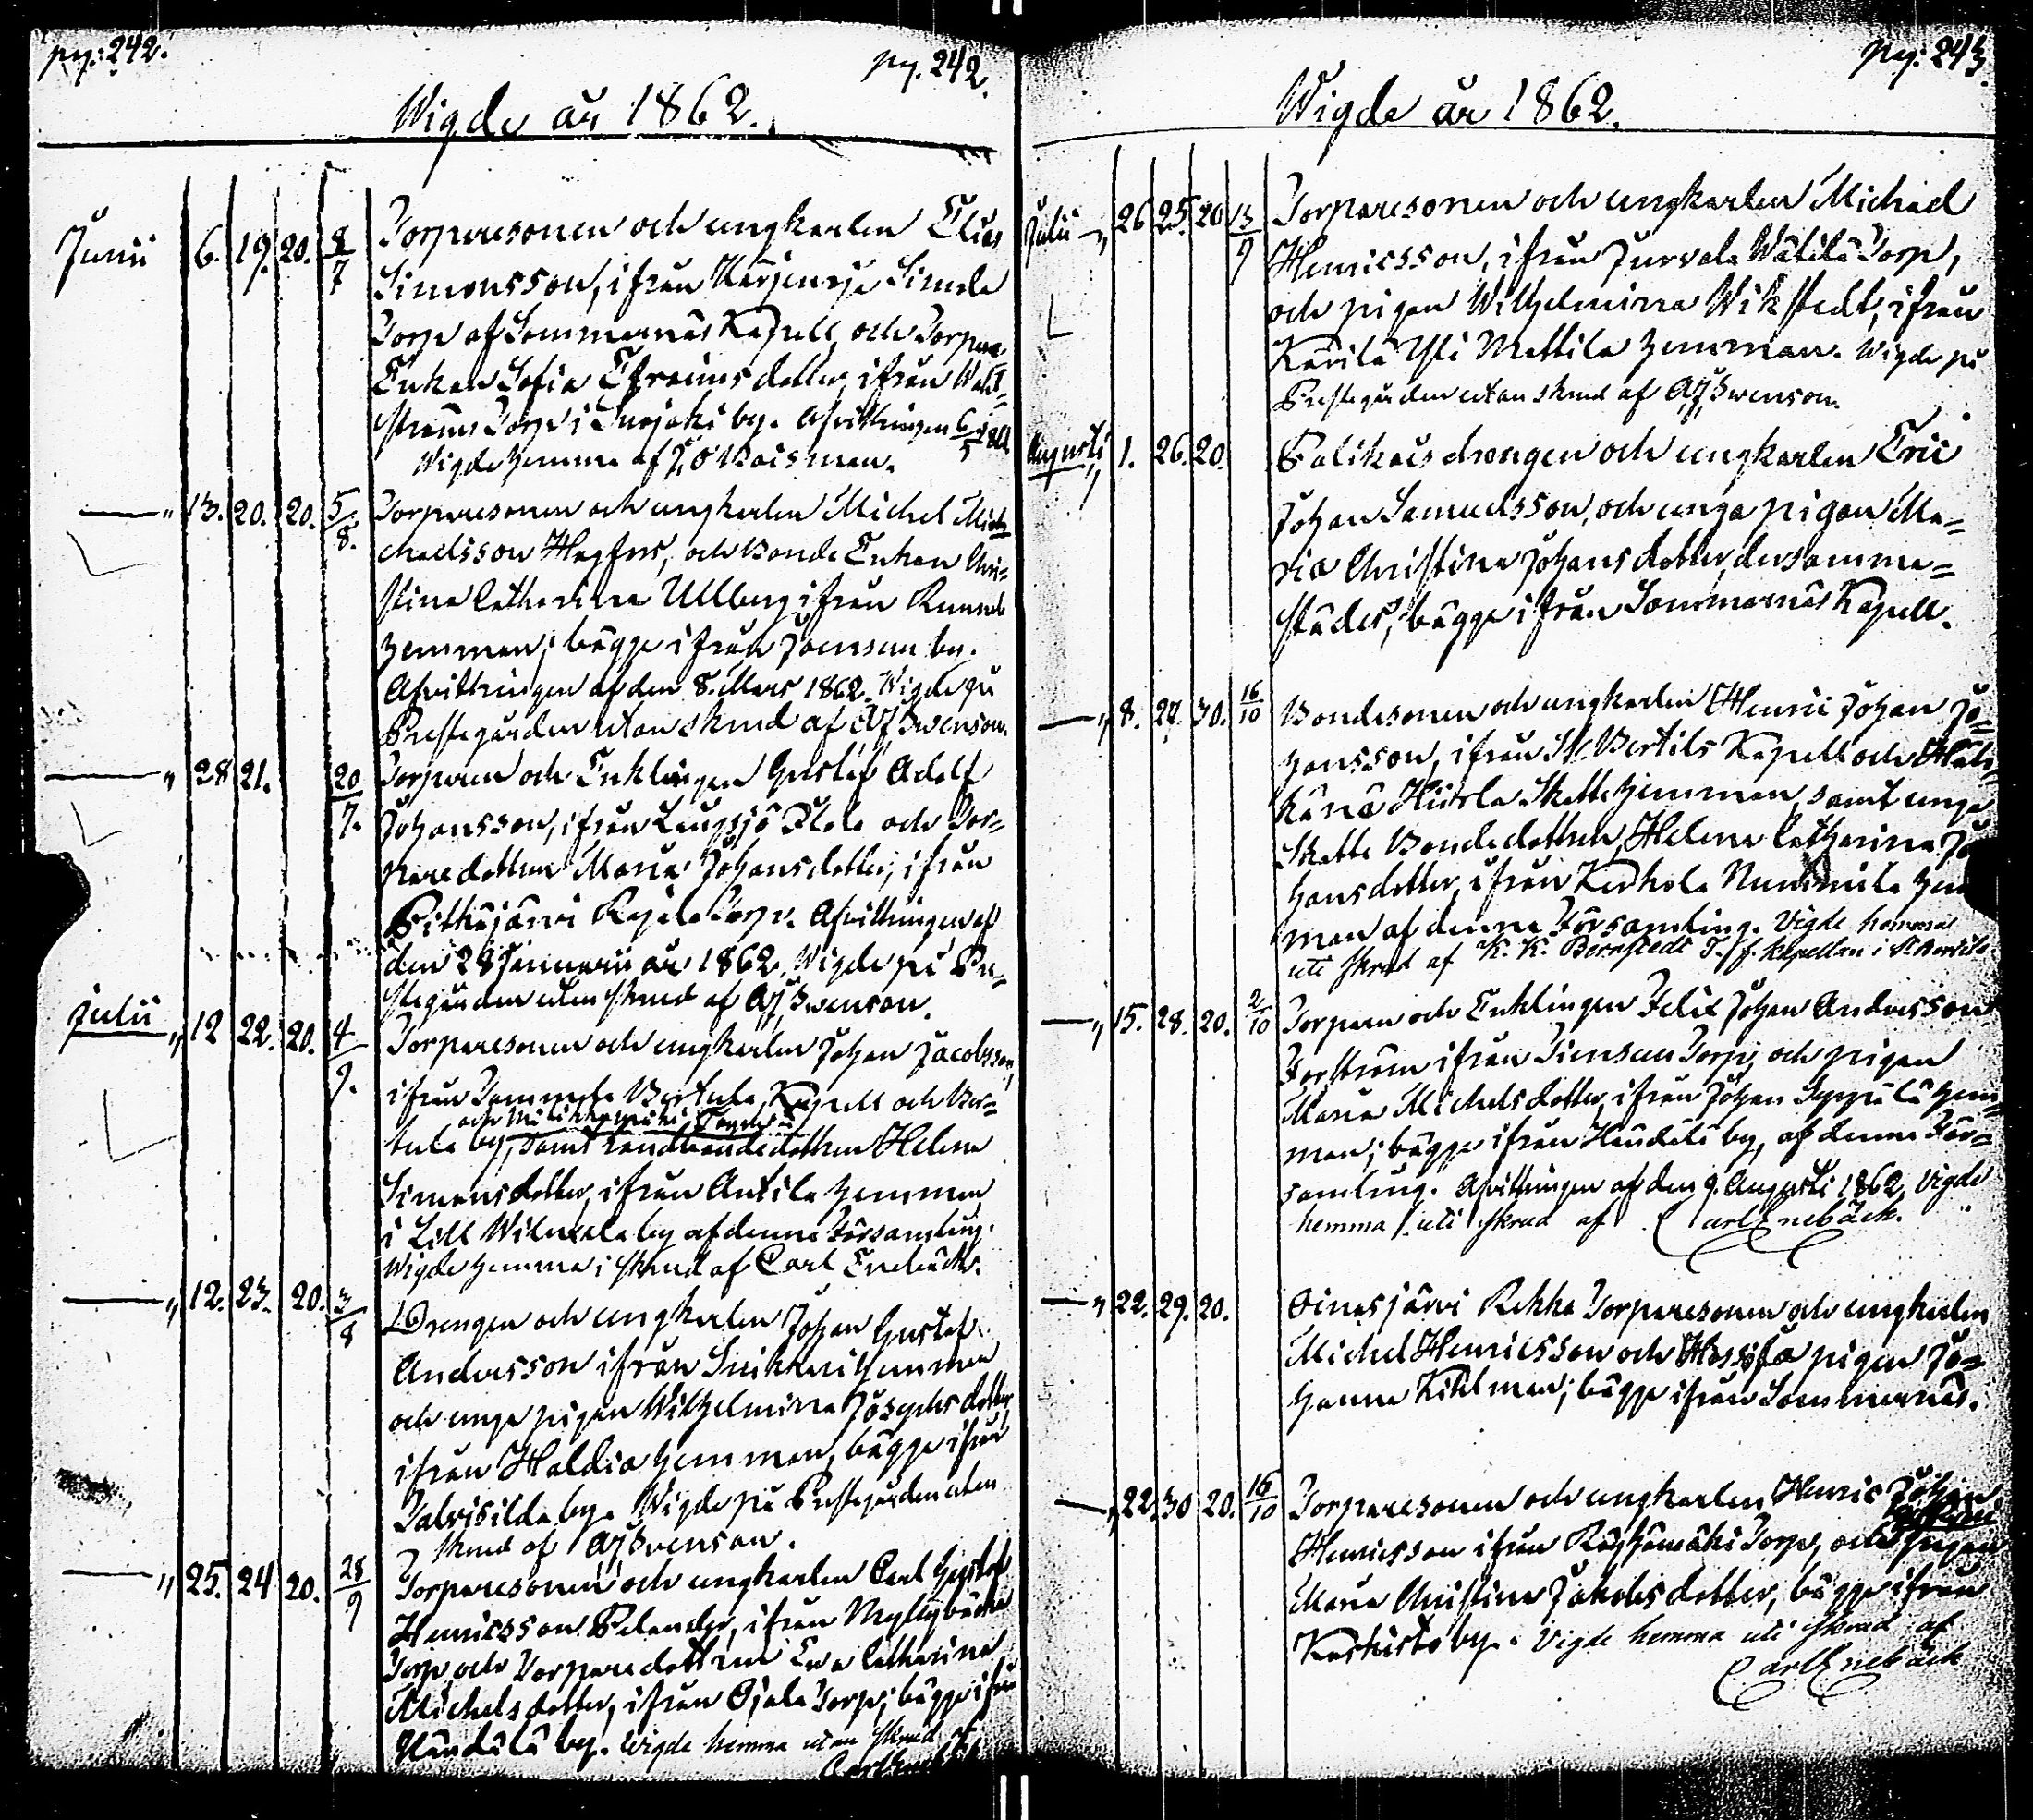 pag: 242.
pag. 242.
Wigde år 1862.
Junii 6. 19. 20. 8/7 Torparesonen och ungkarlen Elias
Simonsson, ifrån
Torp af Sommarnäs Kapell, och Torpare
Enkan Sofia Efraimsdotter, ifrån
ströms Torp i by. Afvittringen 6/5
Wigde hemma af
—„ 13. 20. 20. 5/8. Torparesonen och ungkarlen Michel Mi-
chaelsson Hagfors, och Bonde Enkan Chri-
stina Catharina Ullberg ifrån
hemman; bägge ifrån Joensuu by.
Afvittringen af den 8. Mars 1862. Wigde på
Prestegården utan skrud af AJ Swenson.
—„ 28 21. 20/7. Torparen och Enklingen Gustaf Adolf
Johansson, ifrån och Tor-
paredottren Maria Johansdotter, ifrån
Pitkäjärvi Torp. Afvittringen af
den 28 Januarii år 1862. Wigde på Pre-
stegården utan skrud af AJ Swenson.
Julii „ 12 22. 20. 4/9. Torparesonen och ungkarlen Johan Jacobsson,
ifrån Sommarnäs Kapell och
och
tula by, samt Landbondedottren Helena
Simonsdotter, ifrån Antila hemman
i Lill by af denna Församling.
Wigde hemma i skrud af Carl Enebäck.
—„ 12. 23. 20. 3/8 Drengen och ungkarlen Johan Gustaf
Andersson ifrån hemman
och unga pigan Wilhelmina Josephsdotter
ifrån Haldia hemman, bägge ifrån
Talvisilda by. Wigde på Prestegården utan
skrud af AJ Swenson.
—„ 25. 24 20. 28/9 Torparesonen och ungkarlen Carl Gustaf
Henricsson Selander, ifrån Myllybäcka
Torp och Torparedottren Eva Catharina
Michelsdotter, ifrån Ojala Torp; bägge ifrån
Händälä by. Wigde hemma utan skrud af
pag: 243.
Wigde år 1862.
Julii „ 26 25. 20 13/9 Torparesonen och ungkarlen Michael
Henricsson, ifrån Jurvala Wälilä Torp,
och pigan Wilhelmina Wikstedt, ifrån
Kärilä Yli Mattila hemman. Wigde på
Prestegården utan skrud af AJ Swenson.
Augusti „ 1. 26. 20. drengen och ungkarlen Eric
Johan Samuelsson, och unga pigan Ma-
ria Christina Johansdotter, dersamma-
städes; bägge ifrån Sommarnäs Kapell.
—„ 8. 27. 30. 16/10 Bondesonen och ungkarlen Henric Johan Jo-
hansson, ifrån St. Bertils Kapell och
Skatte hemman, samt unga
Skatte Bondedottren, Helena Catharina Jo
hansdotter, ifrån Kerkola Nummila hem
man af denna Församling. Vigde hemma
uti skrud af K. K. Bernstedt T./f. Kapellan i St. Bertils.
—„ 15. 28. 20. 2/10 Torparen och Enklingen Felix Johan Andersson
Forström ifrån Torp, och pigan
Maria Michelsdotter, ifrån Johan Seppälä hem-
man; bägge ifrån Händälä by, af denna För-
samling. Afvittringen af den 9. Augusti 1862. Vigde
hemma uti skrud af Carl Enebäck.
—„ 22. 29. 20. Oinasjärvi Rekka Torparesonen och ungkarlen
Michel Henricsson och pigan Jo-
hanna Kihlman; bägge ifrån Sommarnäs.
—„ 22. 30 20. 16/10 Torparesonen och ungkarlen Henric Johan
Henricsson ifrån Torp, och pigan
Maria Christina Jakobsdotter, bägge ifrån
Kaskisto by. Vigde hemma uti skrud af
Carl Enebäck